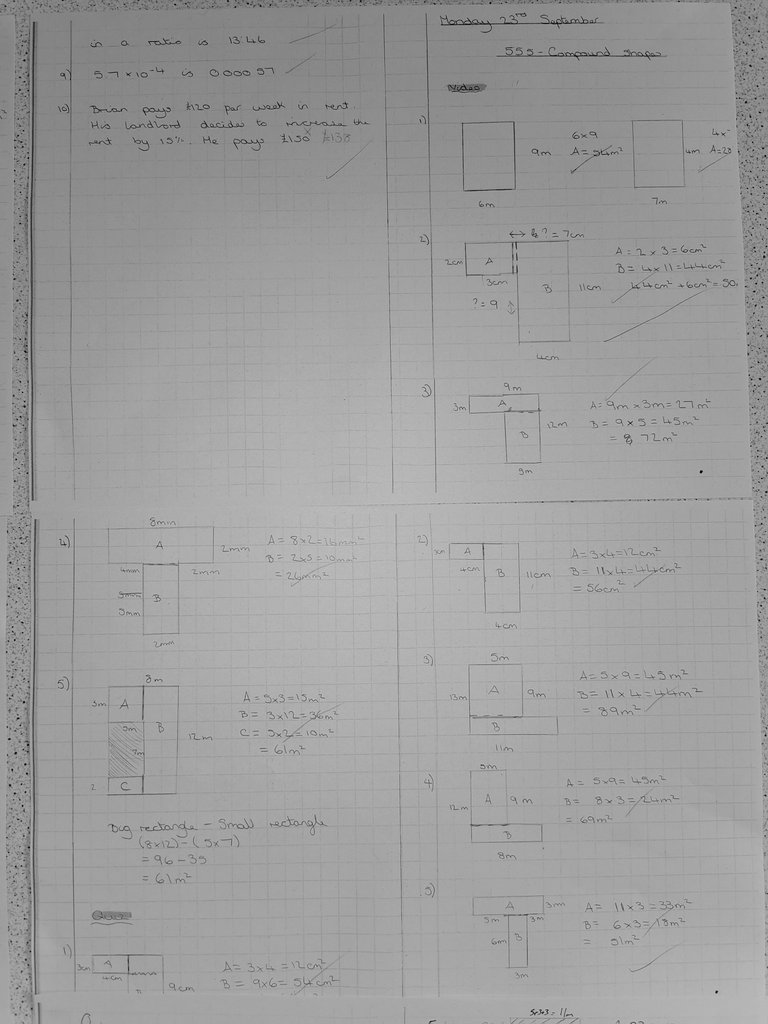 in a ratio is 13:46
9) 5.7 x 10⁻⁴ is 0.00057
10) Brian pays £120 per week in rent.
His landlord decides to increase the
rent by 15%. He pays £150 £138
Monday 23rd September
555 - Compound shapes
Video
1)
6x9
9m A = 54m²
6m
4m
7m
2)
? = 7cm
2cm A
3cm
? = 9
B 11cm
4cm
A = 2 x 3 = 6cm²
B = 4 x 11 = 44cm²
44cm² + 6cm² = 50
3)
9m
3m A
B 12m
5m
A = 9m x 3m = 27m²
B = 9 x 5 = 45m²
= 72m²
4)
8mm
A 2mm
4mm 2mm
B
5mm
5mm
2mm
A = 8x2 = 16mm²
B = 2x5 = 10mm²
= 26mm²
5)
8m
3m A B
5m
7m 12m
2 C
A = 5x3 = 15m²
B = 3x12 = 36m²
C = 5x2 = 10m²
= 61m²
Big rectangle - Small rectangle
(8x12) - (5x7)
= 96 - 35
= 61m²
Quiz
1)
3cm A
4cm
9cm
A = 3x4 = 12cm²
B = 9x6 = 54cm²
2)
A
4cm B 11cm
4cm
A = 3x4 = 12cm²
B = 11x4 = 44cm²
= 56cm²
3)
5m
13m A 9m
B
11m
A = 5x9 = 45m²
B = 11x4 = 44m²
= 89m²
4)
5m
12m A 9m
B
8m
A = 5x9 = 45m²
B = 8x3 = 24m²
= 69m²
5)
A 3m
5m 3m
6m B
3m
A = 11x3 = 33m²
B = 6x3 = 18m²
= 51m²